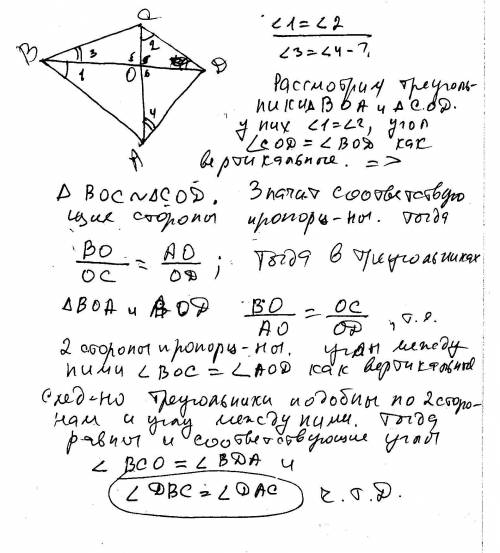 C
B
3
1
5
2
O
6
D
4
A
∠1 = ∠2
∠3 = ∠4 - ?
Рассмотрим треуголь-
ники Δ BOA и Δ COD.
У них ∠1=∠2, угол
∠COD = ∠BOD как
вертикальные. =>
Δ BOC ~ ΔCOD. Значит соответствую
щие стороны пропорц-ны. Тогда
BO/OC = AO/OD ; Тогда в треугольниках
ΔBOA и AOD BO/AO = OC/OD , т.е.
2 стороны пропорц-ны. углы между
ними ∠BOC = ∠AOD как вертикальные
След-но треугольники подобны по 2 сторо-
нам и углу между ними. Тогда
равны и соответствующие углы
∠ BCO = ∠ BDA и
∠ DBC = ∠ DAC ч.т.д.